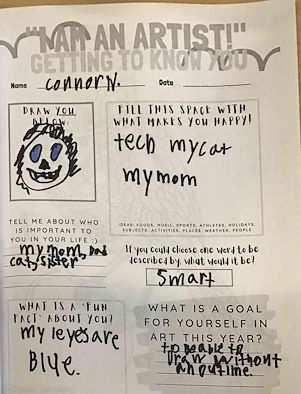 "I AM AN ARTIST!"
GETTING TO KNOW YOU
Name connor N. Date
DRAW YOU
BELOW:
FILL THIS SPACE WITH
WHAT MAKES YOU HAPPY!
tech my cat
my mom
IDEAS: FOODS, MUSIC, SPORTS, ATHLETES, HOLIDAYS,
SUBJECTS, ACTIVITIES, PLACES, WEATHER, PEOPLE
TELL ME ABOUT WHO
IS IMPORTANT TO
YOU IN YOUR LIFE :)
my mom, Dad
cat, sister
If you could choose one word to be
described by, what would it be?
Smart
WHAT IS A "FUN
FACT" ABOUT YOU?
my Ieyes are
Blye.
WHAT IS A GOAL
FOR YOURSELF IN
ART THIS YEAR?
to be able to
Draw without